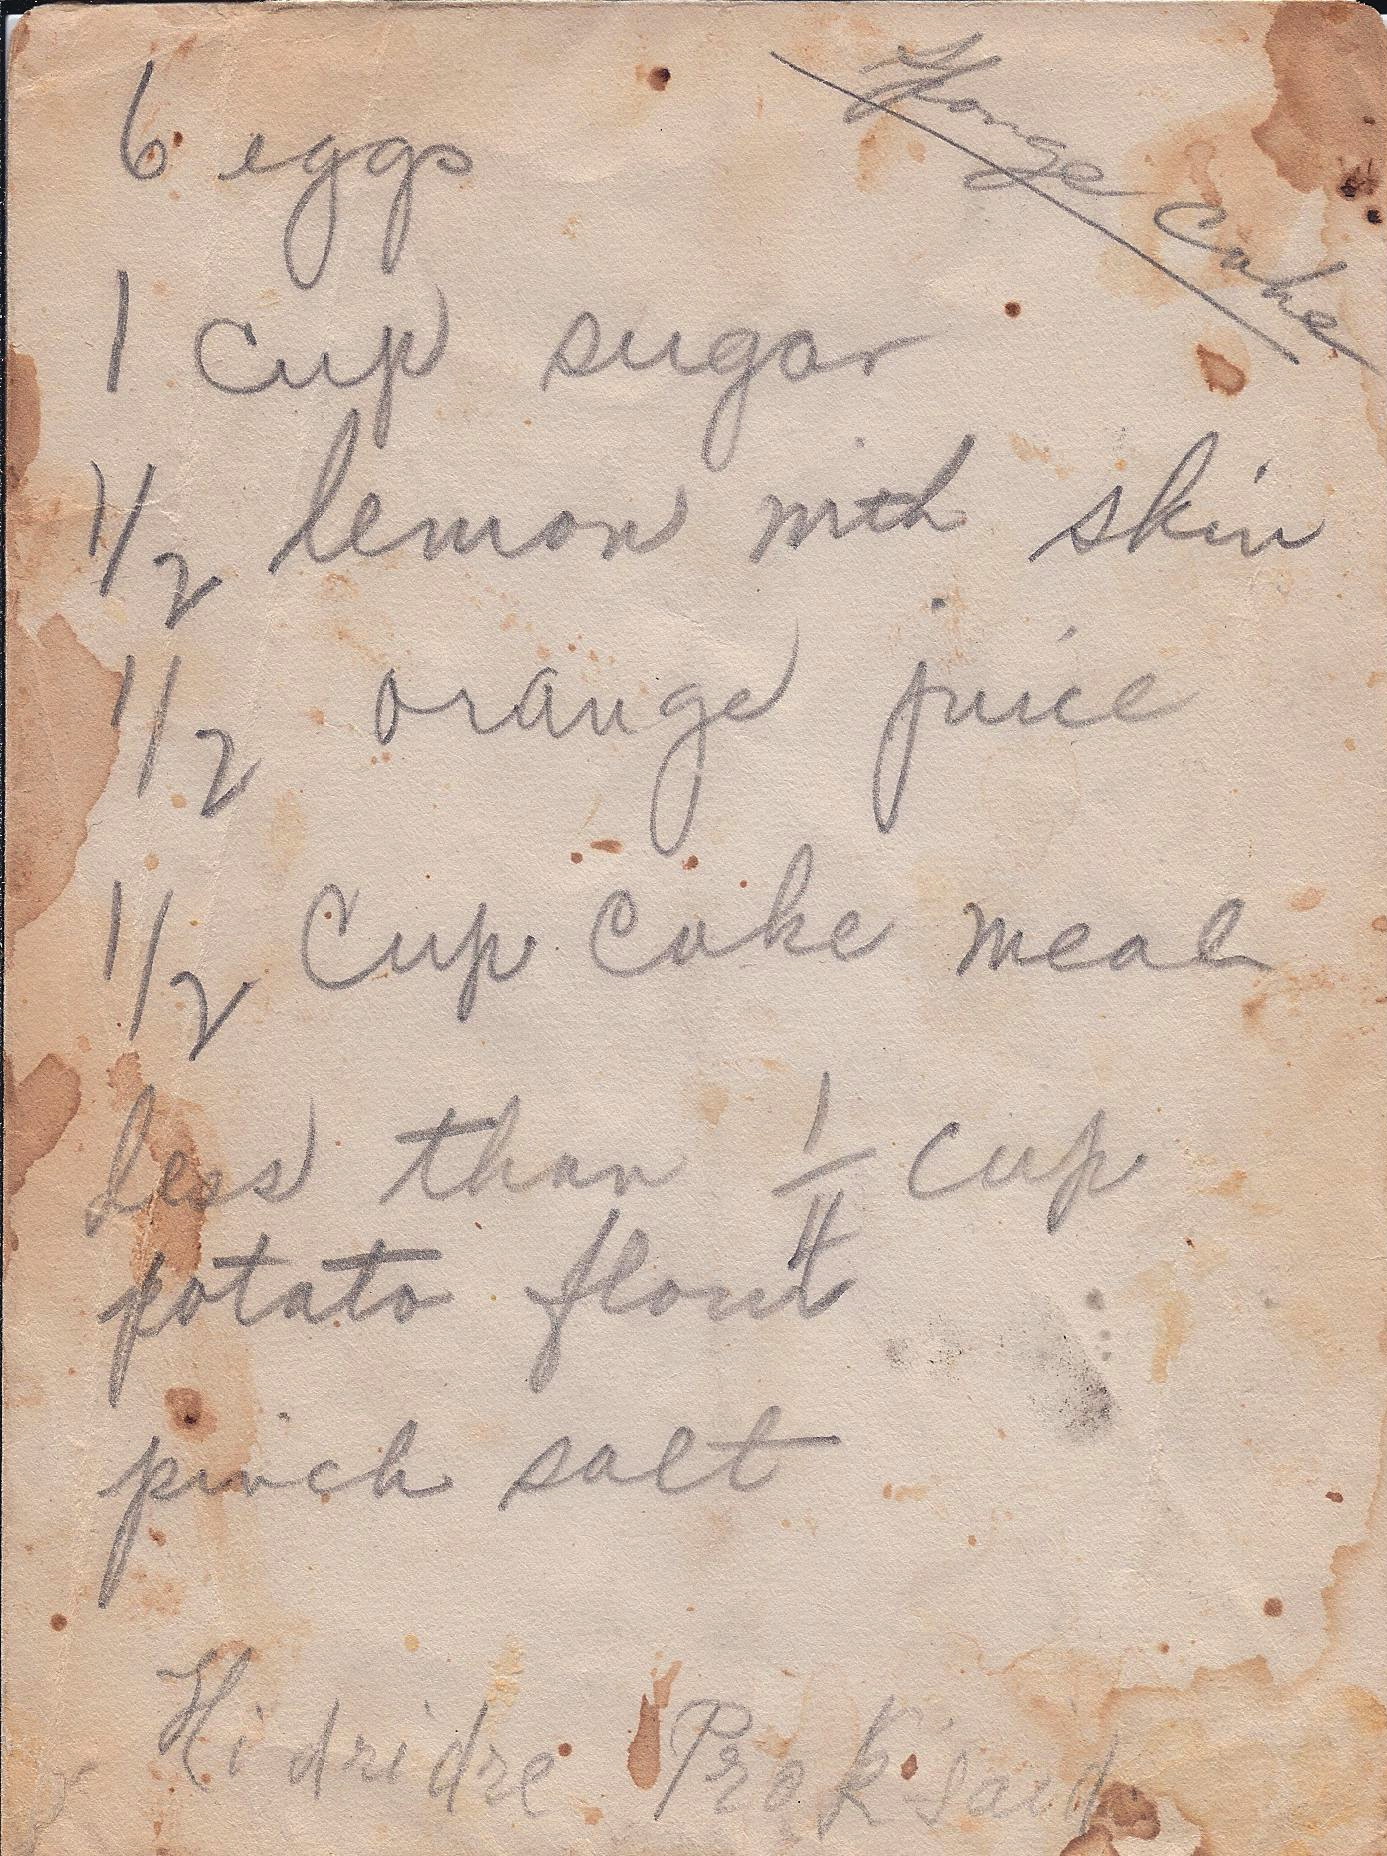 Sponge Cake
6 eggs
1 cup sugar
1/2 lemon with skin
1/2 orange juice
1/2 cup cake meal
less than 1/4 cup
potato flour
pinch salt
Hi dridre Prak said